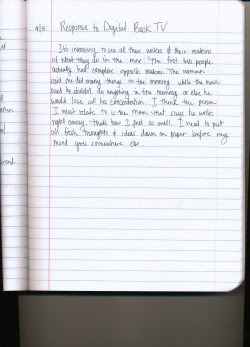 4/5 Response to Digital Book TV
It's interesting to see all these writers & their routines
of what they do in the morn. The first two people
actually had complete opposite routines. The woman
said she did many things in the morning while the man
said he shouldn't do anything in the morning or else he
would lose all his concentration. I think the person
I most relate to is the man that says he writes
right away. That's how I feel as well. I need to put
all fresh thoughts & ideas down on paper before my
mind goes somewhere else.